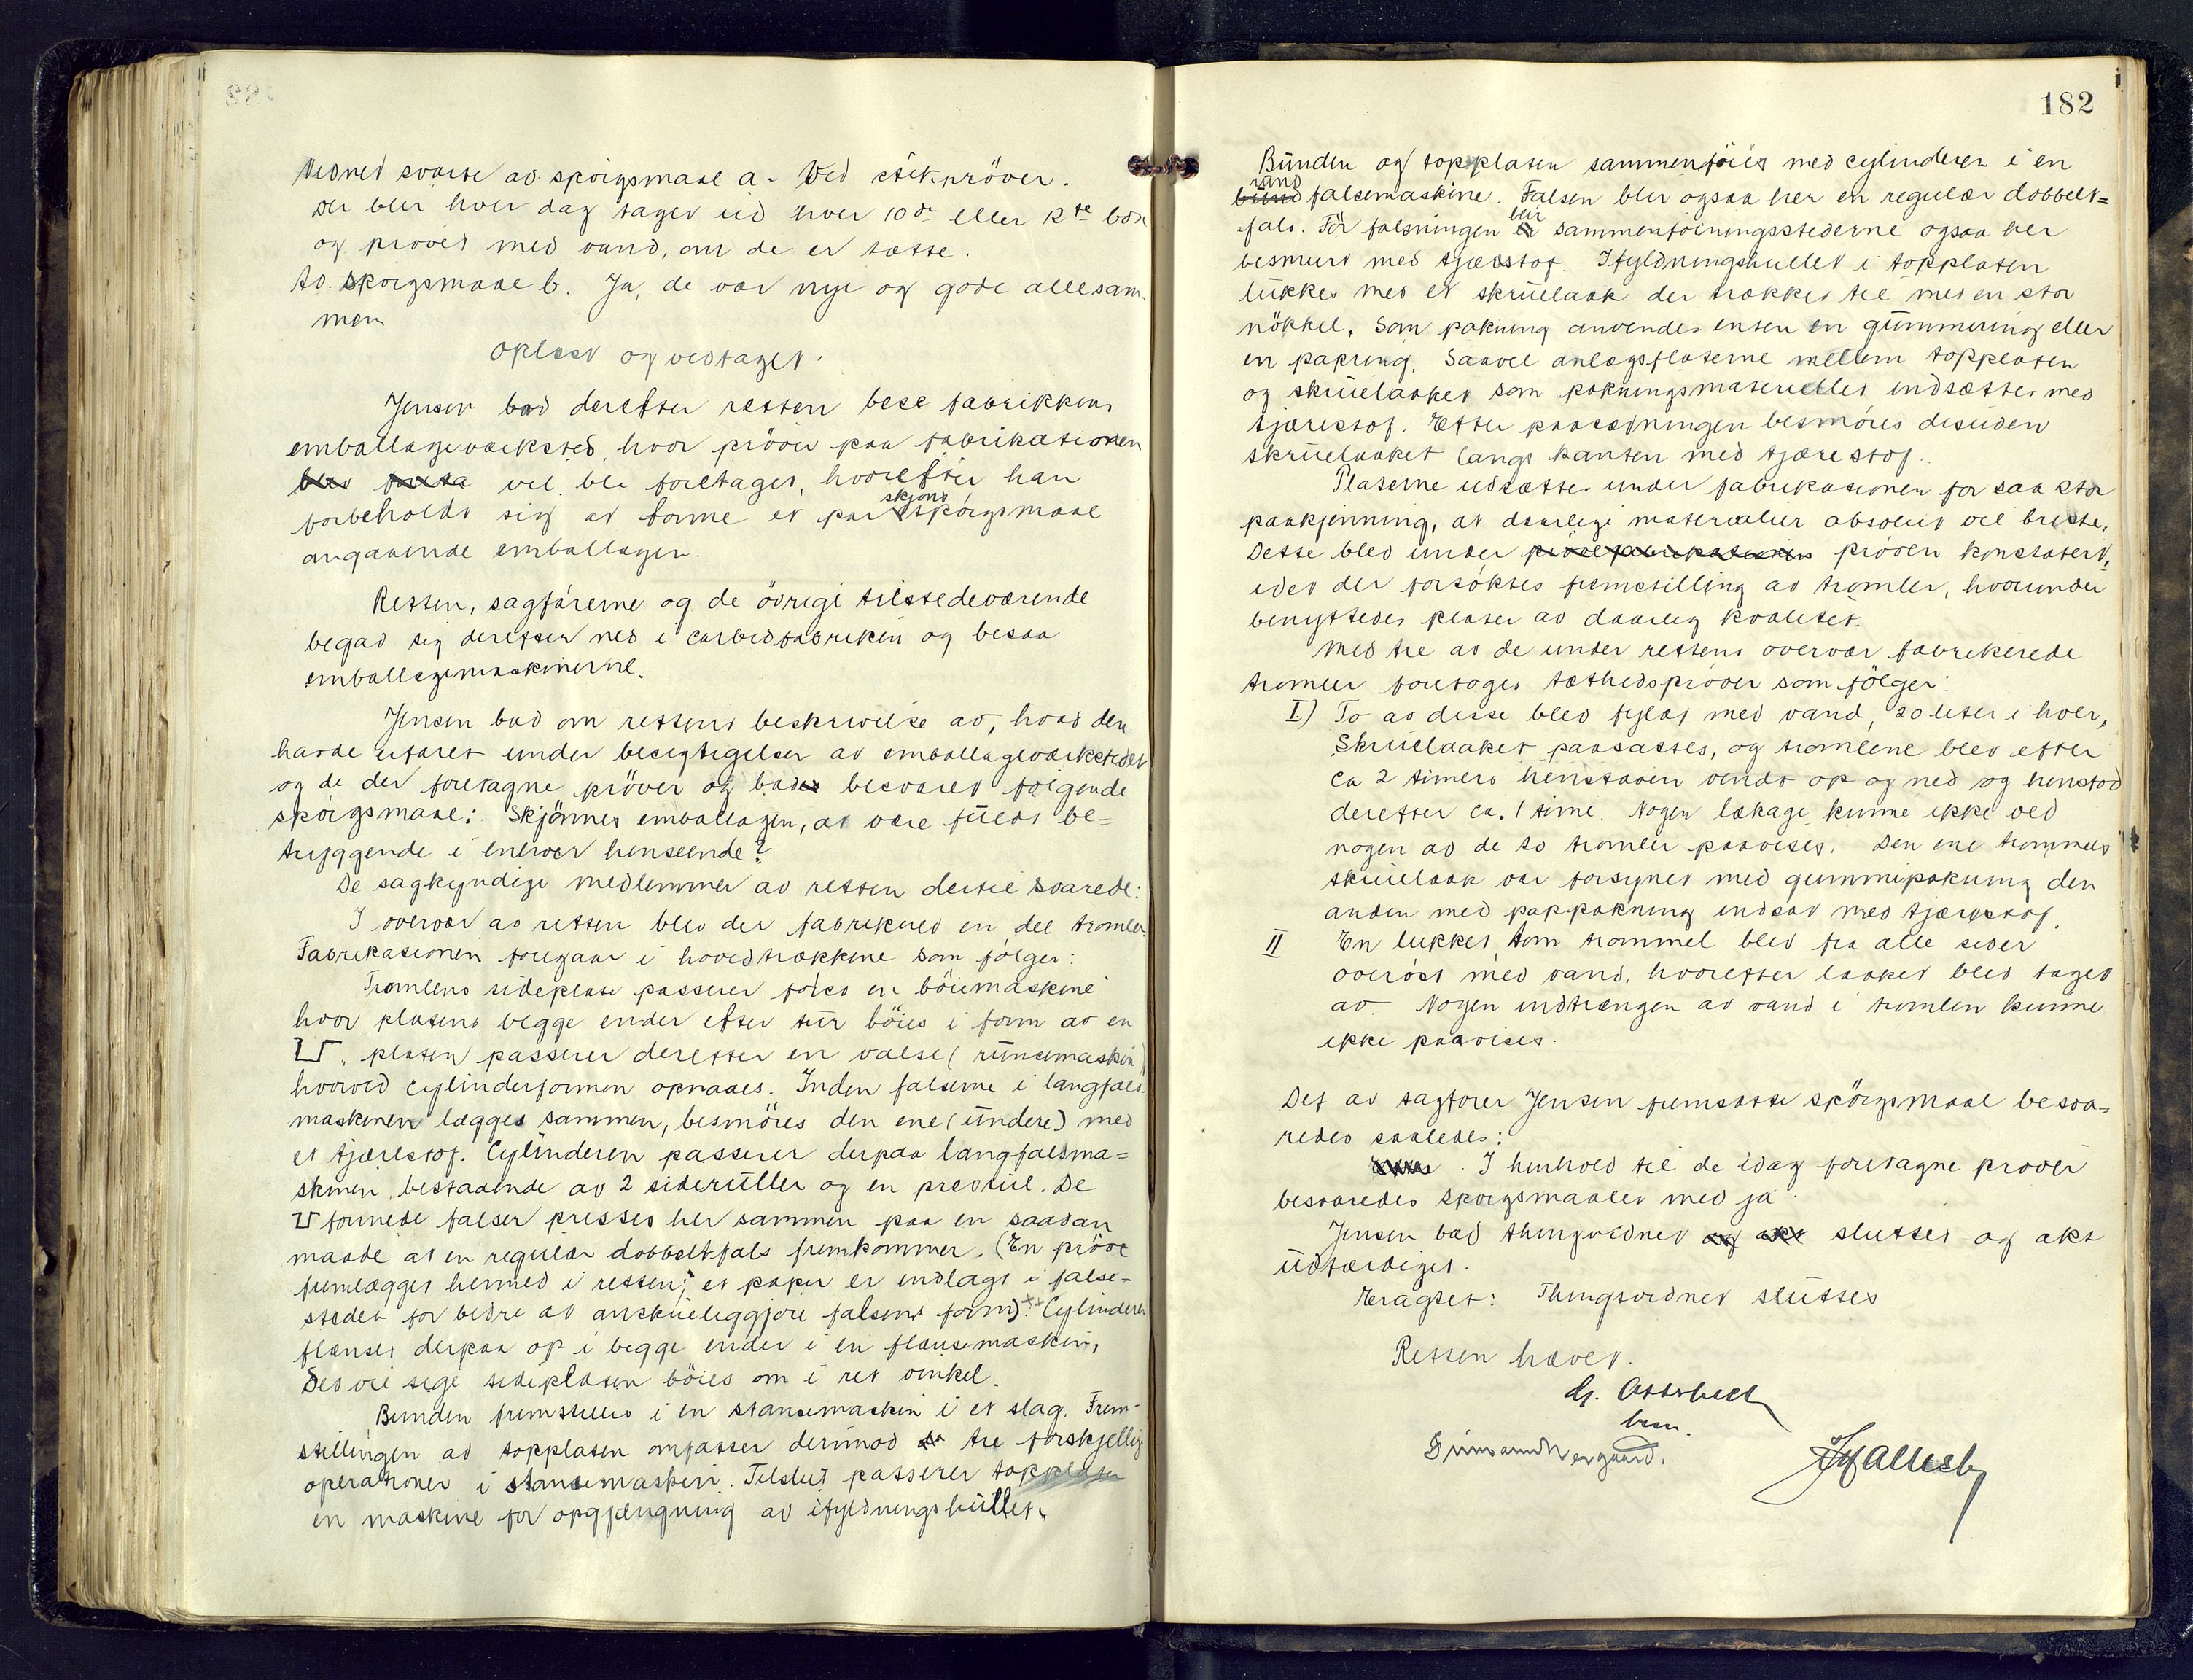 Vidnet svarte av spörgsmaal a. Ved stikpröver.
Der blir hver dag taget ud hver 10de eller 12te box
og prövet med vand, om de er tætte.
Ad. Spörgsmaal b. Ja, de var nye og gode allesam-
men
Oplæst og vedtaget.
Jensen bad derefter retten bese fabrikkens
emballageverksted, hvor pröver paa fabrikationen
blev foreta vil bli foretaget, hvorefter han
forbeholdt sig at forme et par skjöns spörgsmaal
angaaende emballagen.
Retten, sagförerne og de övrige tilstedeværende
begav sig derefter ned i carbidfabriken og besaa
emballagemaskinerne.
Jensen bad om rettens beskrivelse av, hvad den
havde erfaret under besigtigelsen av emballageverkstedet
og de der foretagne pröver og bades besvaret fölgende
spörgsmaal: Skjönnes emballagen, at være fuldt be=
tryggende i enhver henseende?
De sagkyndige medlemmer av retten dertil svarede:
I overvær av retten blev der fabrikeret en del tromler.
Fabrikationen foregaar i hovedtrækkene som fölger:
Tromlens sideplate passerer förs en böiemaskine
hvor platens begge ender efter tur böies i form av en
U. platen passerer derefter en valse (rundemaskin)
hvorved cylinderformen opnaaes. Inden falserne i langfals-
maskinen lægges sammen, besmöres den ene (undere) med
et tjærestof. Cylinderen passerer derpaa langfalsma=
skinen, bestaaende av 2 sideruller og en preshul. De
U formede falser presses her sammen paa en saadan
maade at en regulær dobbeltfals fremkommer. (En pröve
fremlægges hermed i retten; et papir er indlagt i false-
stedet for bedre at anskueliggjöre falsens form). Cylinderen
flanses derpaa op i begge ender i en flansemaskin,
Det vil sige sideplaten böies om i ret vinkel.
Bunden fremstilles i en stansemaskin i et slag. Frem-
stillingen av topplaten omfatter derimod da tre forskjellige
operationer i stansemaskin. Tilslut passerer topplaten
en maskine for opgjængning av ifyldningshullet.
182
Bunden og topplaten sammenföies med cylinderen i en
rand
bund falsemaskine. Falsen blir ogsaa her en regulær dobbelt=
fals. För falsningen er blir sammenföiningsstederne ogsaa her
besmurt med tjærstof. Ifyldningshullet i topplaten
lukkes med et skruelaak der trækkes til med en stor
nökkel. Som pakning anvendes enten en gummiring eller
en papring. Saavel anlægsflaterne mellem topplaten
og skruelaaket som pakningsmateriellet indsættes med
tjærestof. Efter paasætningen besmöres desuden
skruelaaket langs kanten med tjærestof.
Platerne udsættes under fabrikationen for saa stor
paakjenning, at daarlige materialier absolut vil briste.
Dette blev under pröven konstatert,
idet der forsöktes fremstilling av tromler, hvorunder
benyttedes plater av daarlig kvalitet.
Med tre av de under rettens overvær fabrikerede
tromler foretoges tæthedspröver som fölger:
I) To av disse blev fyldt med vand, 20 liter i hver,
Skruelaaket paasattes, og tromlene blev efter
ca 2 timers henstaaen vendt op og ned og henstod
derefter ca. 1 time. Nogen lækage kunne ikke ved
nogen av de to tromler paavises. Den ene trommels
skruelaak var forsynet med gummipakning den
anden med pappakning indsat med tjærestof.
II En lukket tom trommel blev fra alle sider
overöst med vand, hvorefter laaket blev taget
av. Nogen indtrængen av vand i tromlen kunne
ikke paavises.
Det av sagförer Jensen fremsatte spörgsmaal besva-
redes saaledes:
I henhold til de idag foretagne pröver
besvaredes spörgsmaalet med ja.
Jensen bad thingvidnet og akt sluttet og akt
udfærdiget.
Eragtet: Thingsvidnet sluttes
Retten hævet.